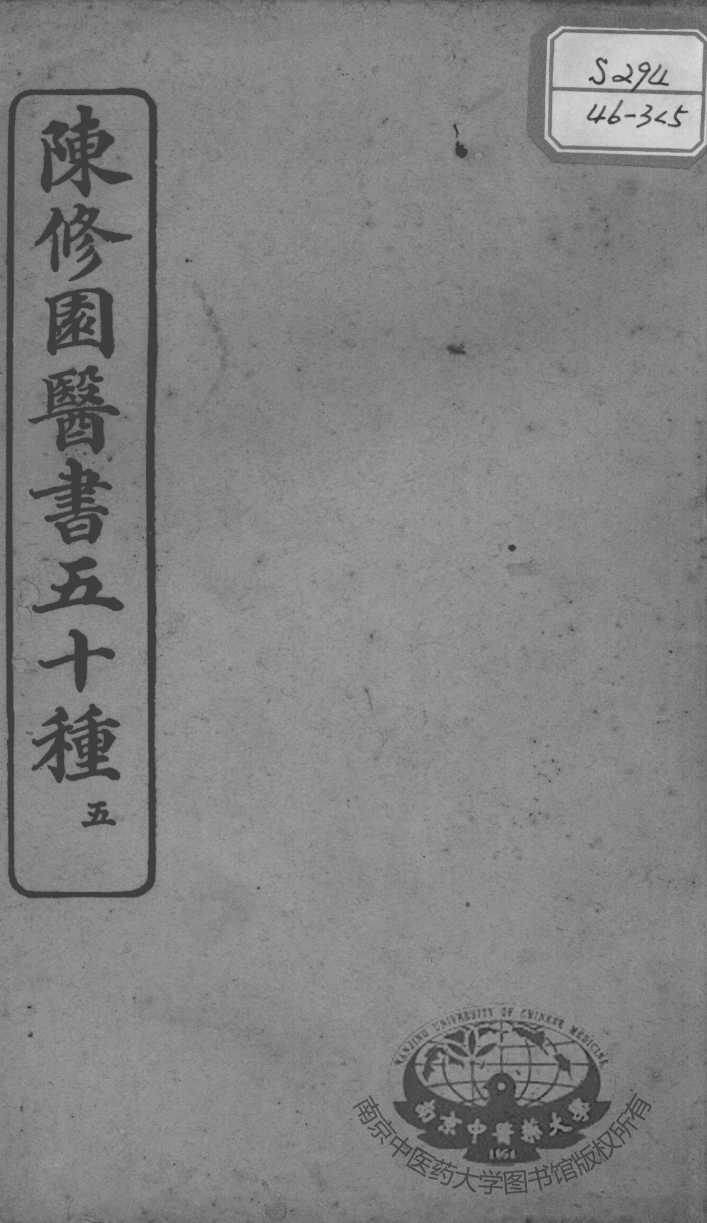 陳修園醫書五十種
五
S294
46-3<5
NANJING UNIVERSITY OF CHINESE MEDICINE
南京中醫藥大學
1954
南京中医药大学图书馆版权所有